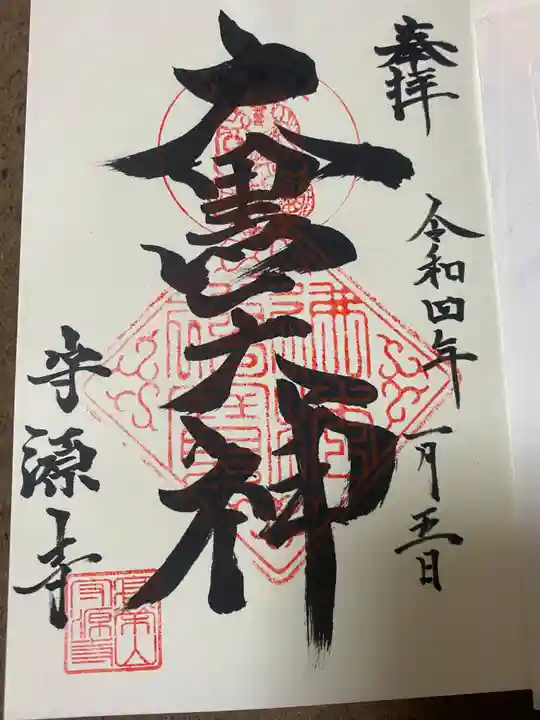 奉拝
令和四年一月五日
大黒大神
守源寺